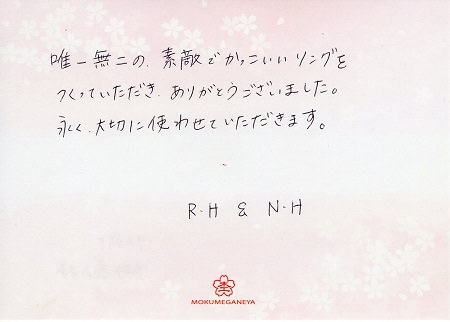 唯一無二の、素敵でかっこいいリングを
つくっていただき、ありがとうございました。
永く、大切に使わせていただきます。
R.H & N.H
MOKUMEGANEYA